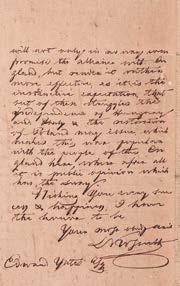 will not only in no way com
promise the alliance with En
gland, but render it
more effective, as it is the
instinctive expectation that
out of this struggle the
of Hungary
and Italy & the restoration
of Poland may issue, which
makes this war popular
with the people of this En
gland here where after all
it is public opinion which
has the sway.
Wishing you every suc
cess & happiness, I have
the honour to be
Your most
Edward Yates